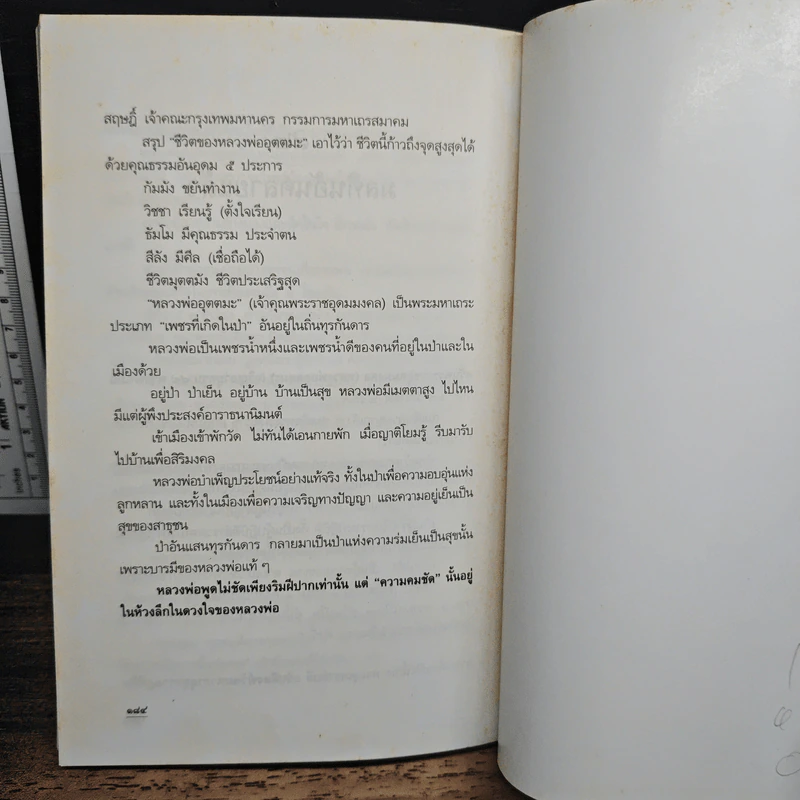 สฤษฎิ์ เจ้าคณะกรุงเทพมหานคร กรรมการมหาเถรสมาคม
สรุป “ชีวิตของหลวงพ่ออุตตมะ” เอาไว้ว่า ชีวิตนี้ก้าวถึงจุดสูงสุดได้
ด้วยคุณธรรมอันอุดม ๕ ประการ
กัมมัง ขยันทำงาน
วิชชา เรียนรู้ (ตั้งใจเรียน)
ธัมโม มีคุณธรรม ประจำตน
สีลัง มีศีล (เชื่อถือได้)
ชีวิตมุตตมัง ชีวิตประเสริฐสุด
“หลวงพ่ออุตตมะ” (เจ้าคุณพระราชอุดมมงคล) เป็นพระมหาเถระ
ประเภท “เพชรที่เกิดในป่า” อันอยู่ในถิ่นทุรกันดาร
หลวงพ่อเป็นเพชรน้ำหนึ่งและเพชรน้ำดีของคนที่อยู่ในป่าและใน
เมืองด้วย
อยู่ป่า ป่าเย็น อยู่บ้าน บ้านเป็นสุข หลวงพ่อมีเมตตาสูง ไปไหน
มีแต่ผู้พึงประสงค์อาราธนานิมนต์
เข้าเมืองเข้าพักวัด ไม่ทันได้เอนกายพัก เมื่อญาติโยมรู้ รีบมารับ
ไปบ้านเพื่อสิริมงคล
หลวงพ่อบำเพ็ญประโยชน์อย่างแท้จริง ทั้งในป่าเพื่อความอบอุ่นแห่ง
ลูกหลาน และทั้งในเมืองเพื่อความเจริญทางปัญญา และความอยู่เย็นเป็น
สุขของสาธุชน
ป่าอันแสนทุรกันดาร กลายมาเป็นป่าแห่งความร่มเย็นเป็นสุขนั้น
เพราะบารมีของหลวงพ่อแท้ ๆ
หลวงพ่อพูดไม่ชัดเพียงริมฝีปากเท่านั้น แต่ “ความคมชัด” นั้นอยู่
ในห้วงลึกในดวงใจของหลวงพ่อ
๑๘๔